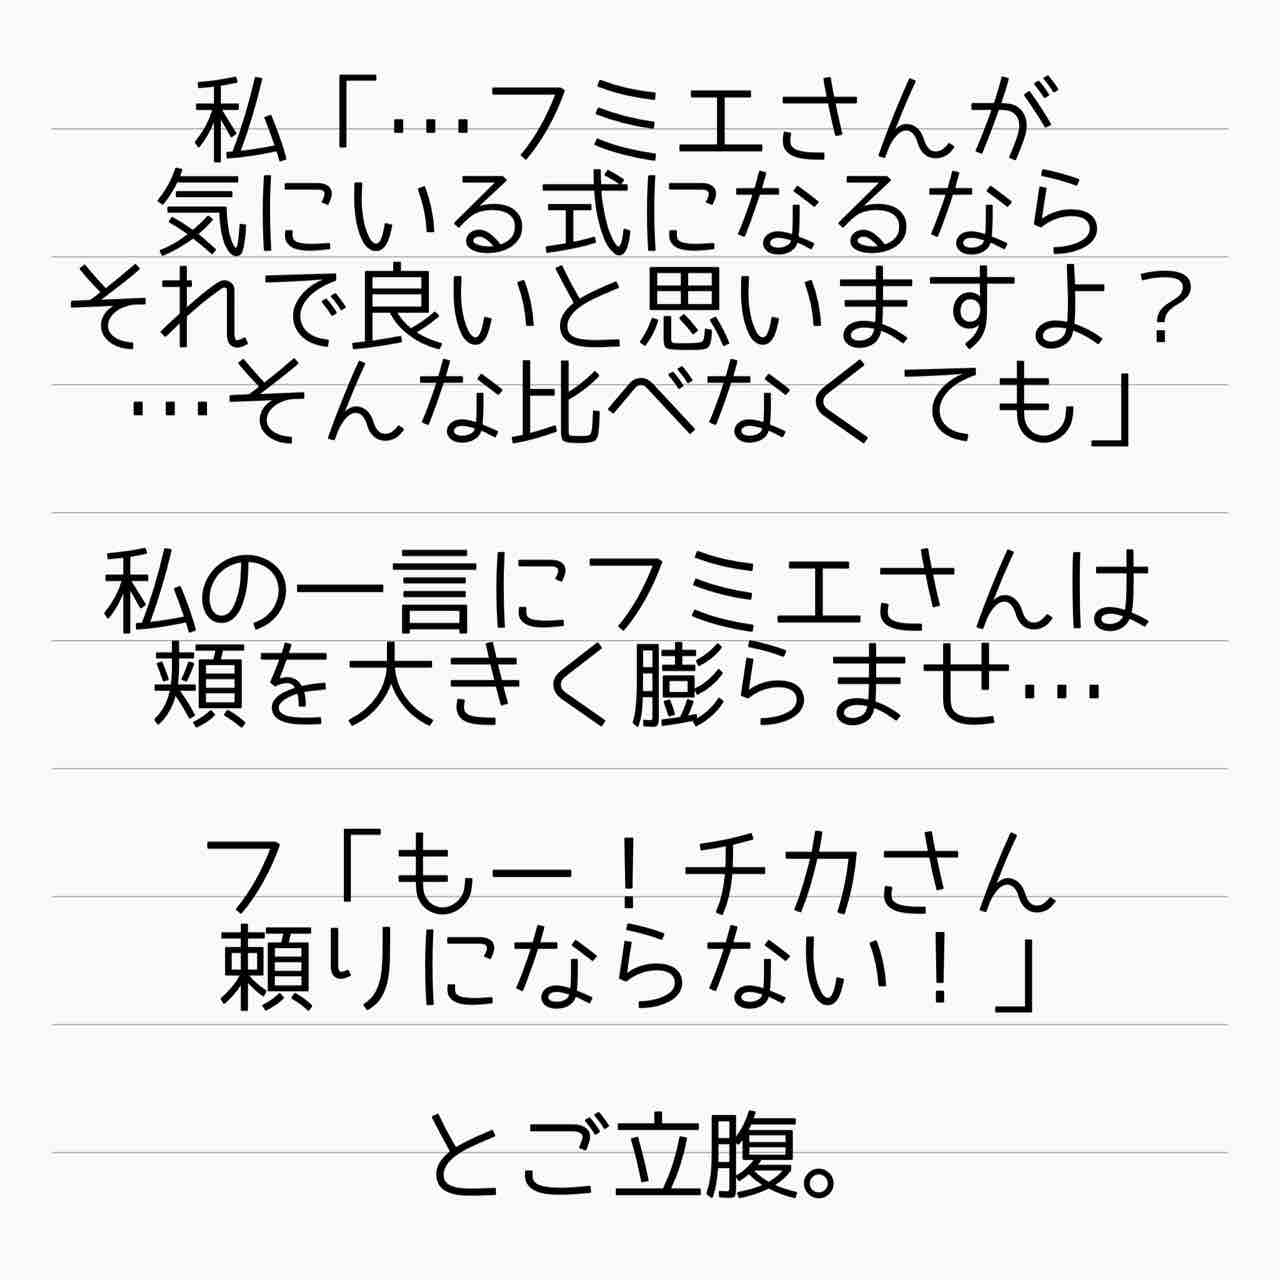 私「…フミエさんが
気にいる式になるなら
それで良いと思いますよ？
…そんな比べなくても」
私の一言にフミエさんは
頬を大きく膨らませ…
フ「もー！チカさん
頼りにならない！」
とご立腹。